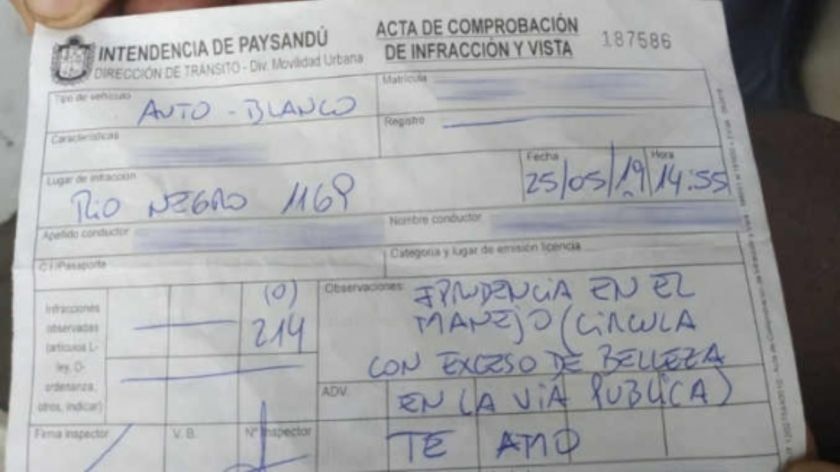 INTENDENCIA DE PAYSANDÚ
DIRECCIÓN DE TRÁNSITO - Div. Movilidad Urbana
ACTA DE COMPROBACIÓN
DE INFRACCIÓN Y VISTA
187586
Tipo de vehículo
AUTO - BLANCO
Matrícula
Características
Registro
Lugar de infracción
RIO NEGRO 1169
Fecha
25/05/19
Hora
14:55
Apellido conductor
Nombre conductor
C.I/Pasaporte
Categoría y lugar de emisión licencia
Infracciones
observadas
(artículos L-
ley, O-
ordenanza,
otros, indicar)
(O)
214
Observaciones
IPRUDENCIA EN EL
MANEJO (CIRCULA
CON EXCESO DE BELLEZA
EN LA VIA PUBLICA)
ADV.
TE AMO
Firma inspector
V. B.
Nº Inspector